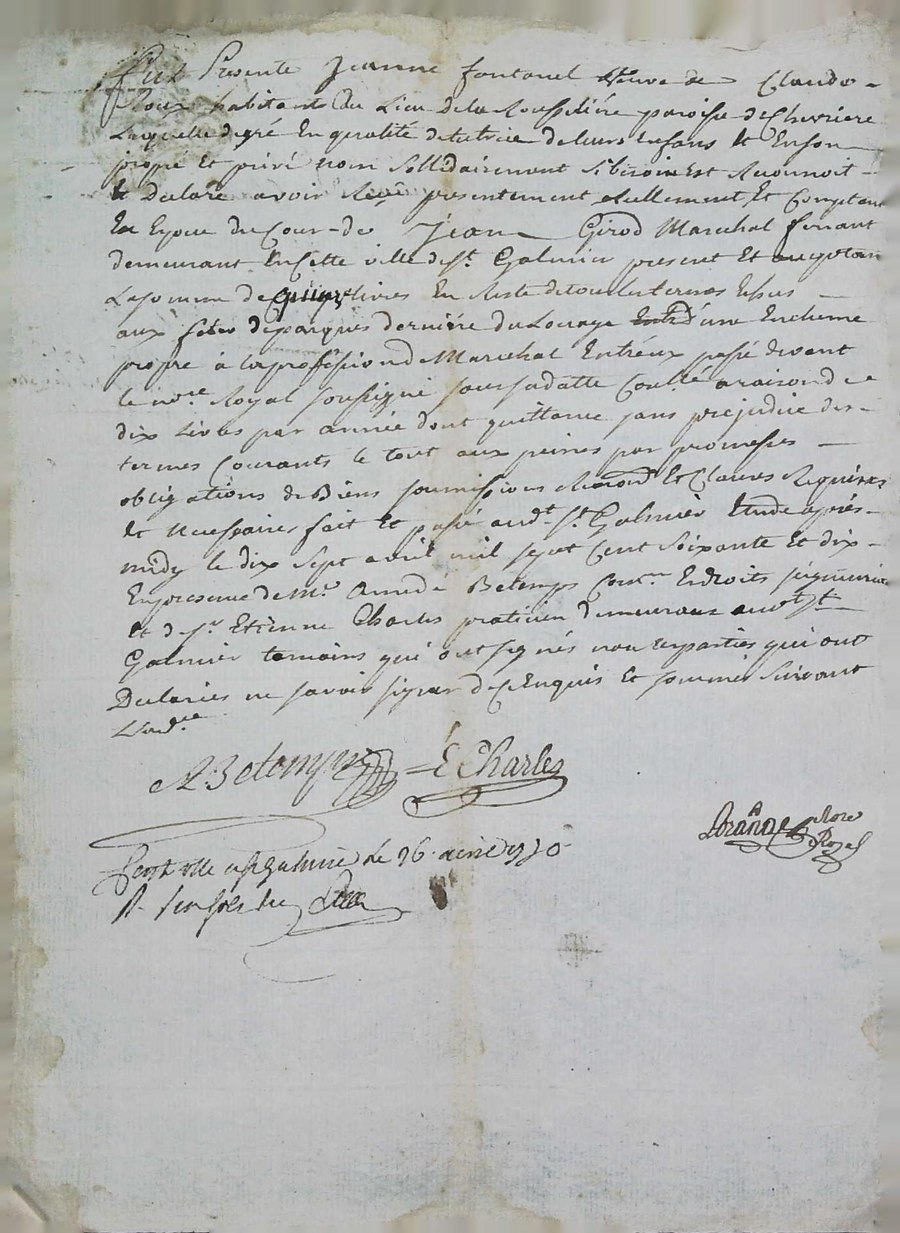 Fut Presente Jeanne fontanel veuve de Claude
Roux habitant du Lieu de la Rousseliére paroisse de Chevriere
Laquelle de gré En qualité de tutrice de leurs enfans et En son
propre et privé nom Sollidairement Sy besoin est Reconnoit
et Declare avoir Recû presentement Reellement et Comptant
En Espece du Cour de Jean Girod Marechal ferrant
demeurant En Cette ville de St. Galmier present et acceptant
La somme de quinze livres En Reste de tous les termes Echus
aux fetes de paques derniére du Louage d'une Enclume
propre à la profession de Marechal Entr'eux passé devant
le nore. Royal soussigné sous sa datte à raison de
dix Livres par année dont quittance sans prejudice des
termes Courants le tout aux peines par promesses
obligations de Biens soumissions Renond. et Clauses Requises
et necessaires fait et passé audt. St. Galmier Etude aprés
midy le dix Sept avril mil sept Cent Soixante et dix
En presence de Mr. Amedé Betemps En droits
et de Sr. Etienne Charles praticien demeurant audt. St.
Galmier temoins qui ont signés non les parties qui ont
Declarées ne savoir signer de Ce Enquis et sommés Suivant
L'ord.ce
A. Betemps E Charles
nore Royal
a St galmier le 26 avril 1770
R.